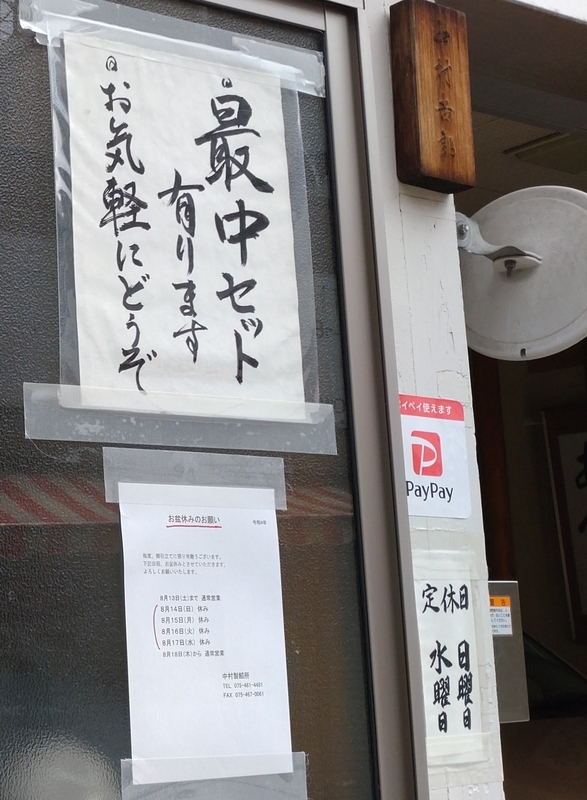 最中セット
有ります
お気軽にどうぞ
お盆休みのお願い
令和4年
毎度、御引立てに預り有難うございます。
下記日程、お盆休みとさせていただきます。
よろしくお願いいたします。
8月13日(土)まで 通常営業
8月14日(日) 休み
8月15日(月) 休み
8月16日(火) 休み
8月17日(水) 休み
8月18日(木)から 通常営業
中村製餡所
TEL 075-461-4481
FAX 075-467-0061
ペイペイ使えます
PayPay
定休日
日曜日
水曜日